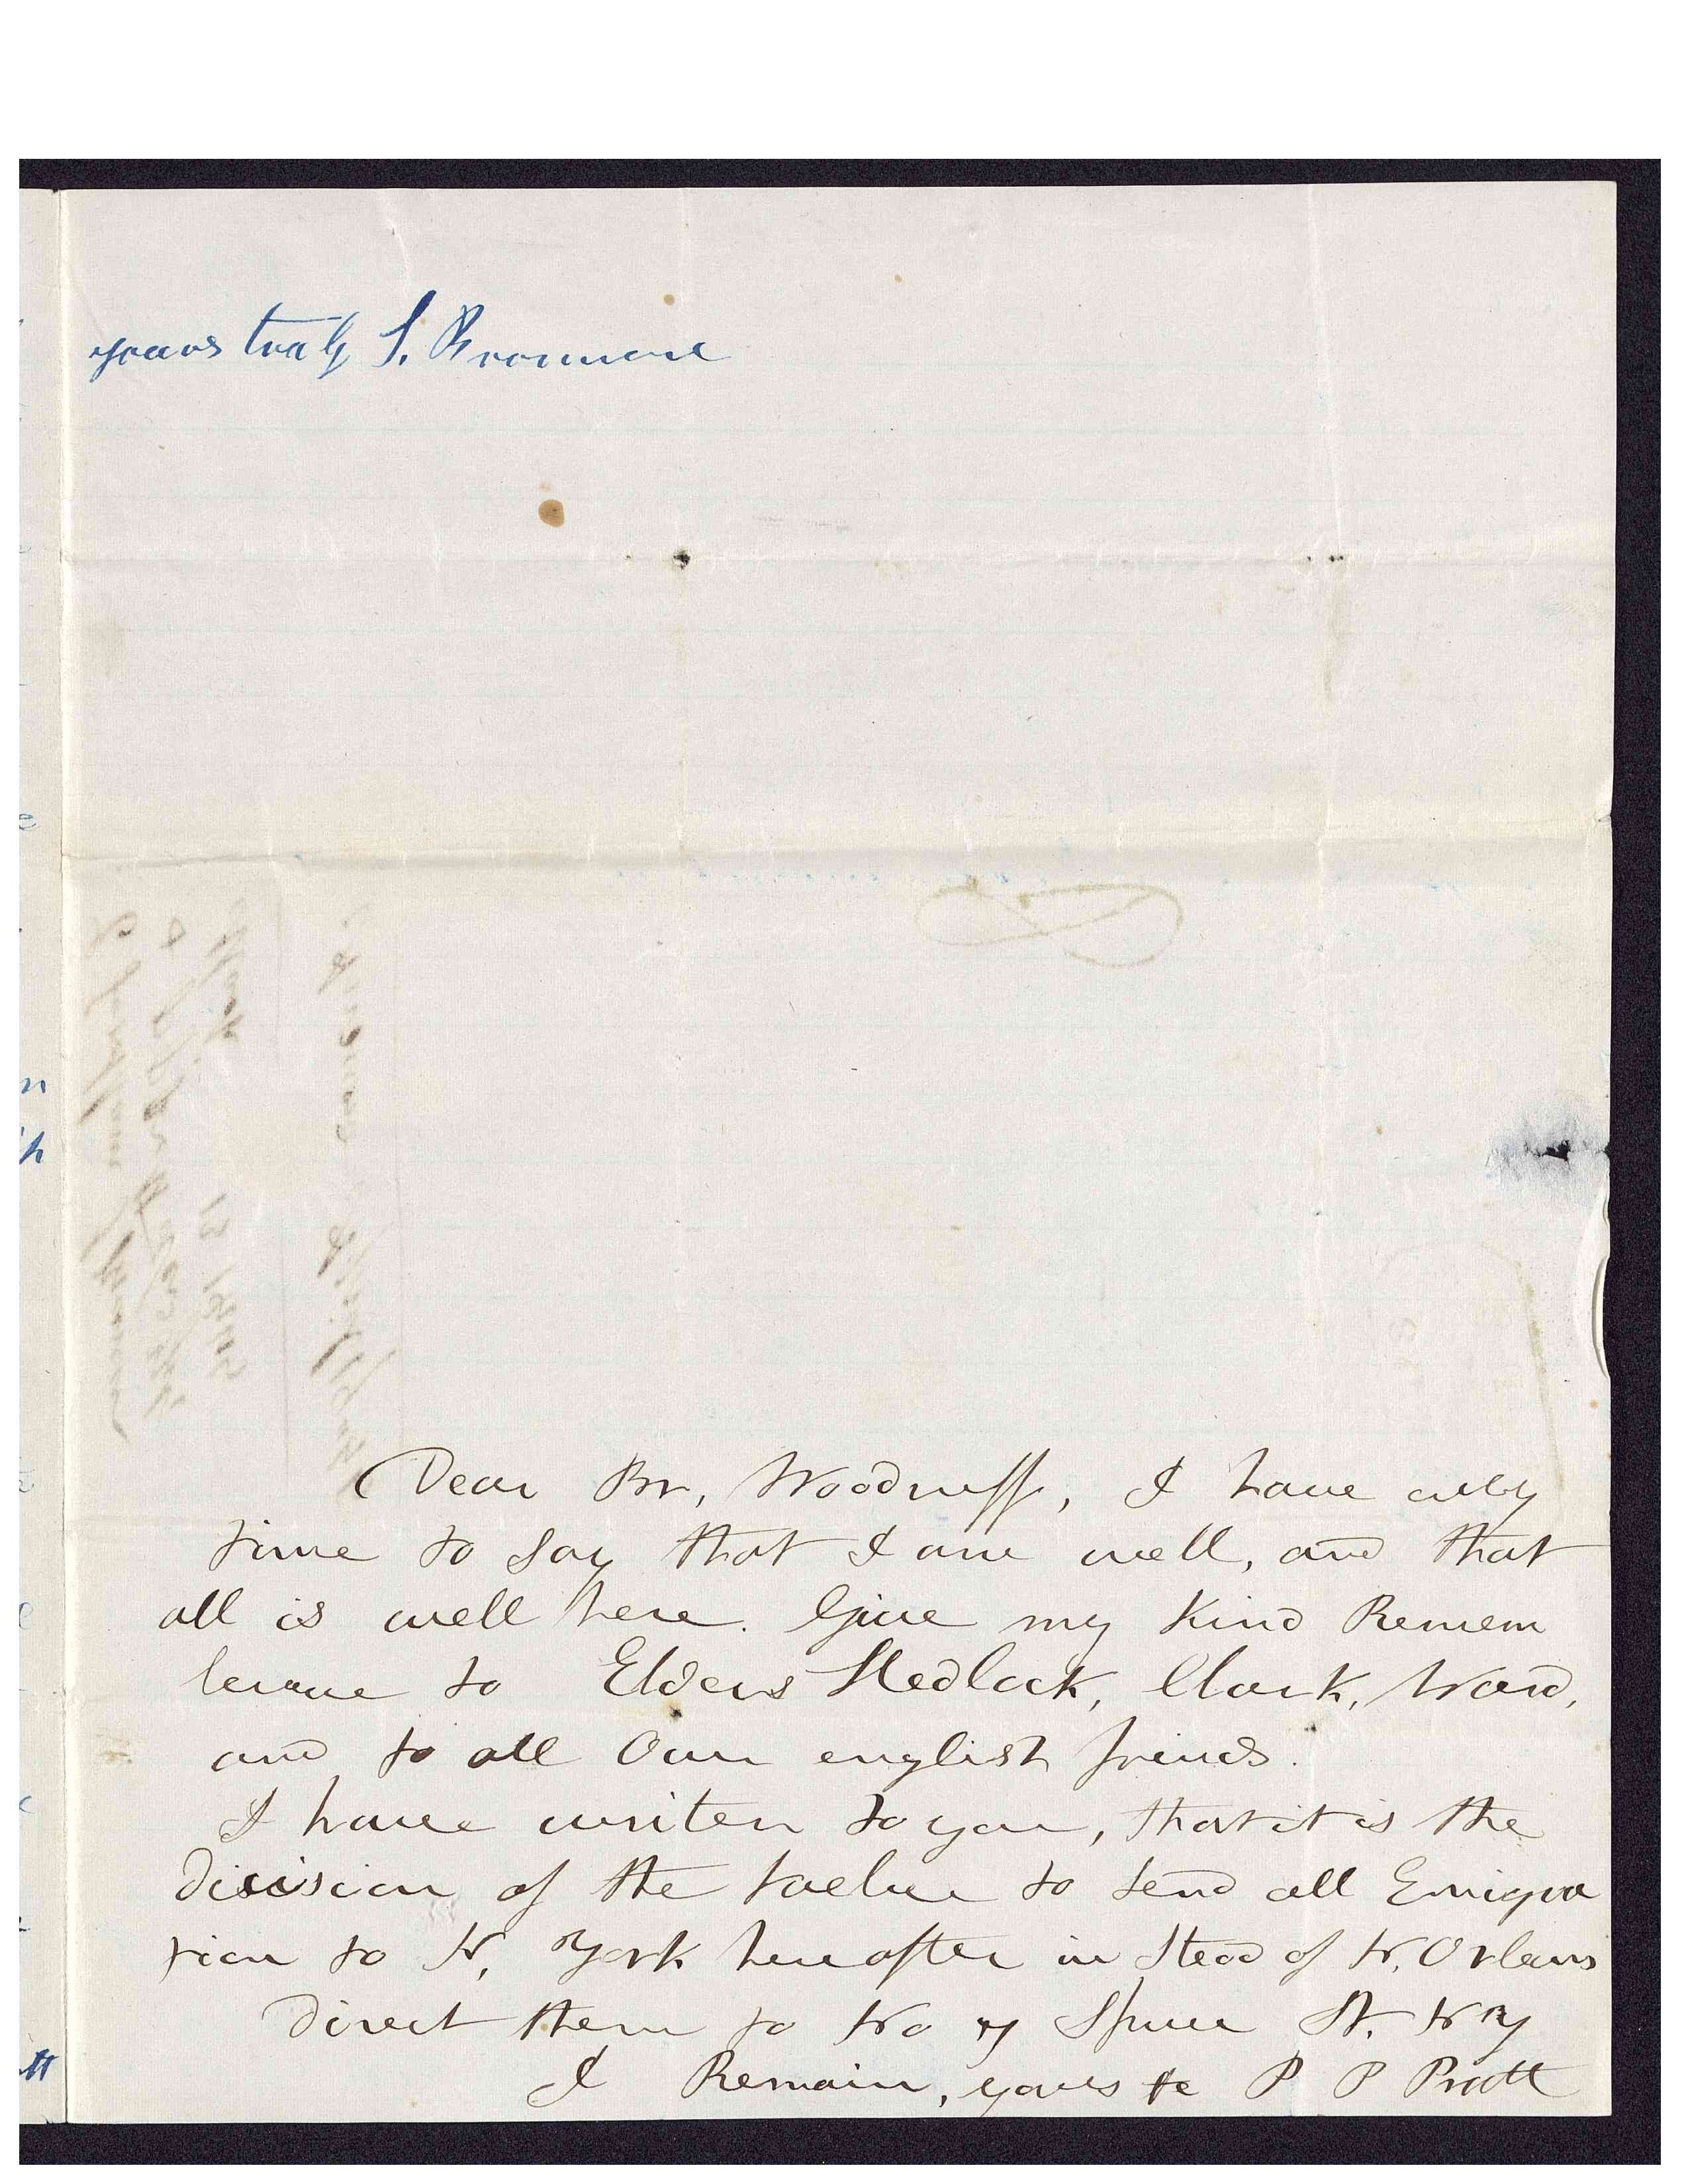 yours truly S. Brannan
Dear Br, Woodruff, I have only
time to say that I am well, and that
all is well here. Give my kind Remem
brance to Elders Hedlock, Clark, Ward,
and to all Our english friends.
I have writen to you, that it is the
disision of the twelve to send all Emigra
tion to N, York hereafter in stead of N, Orleans
direct them to No 7 Spruce St. N Y
I Remain, yours &c P P Pratt